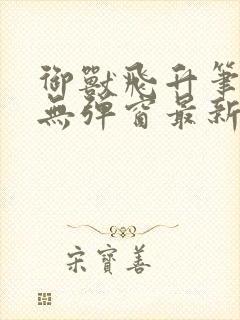 御獸飛升筆
無彈窗最新
宋寶善